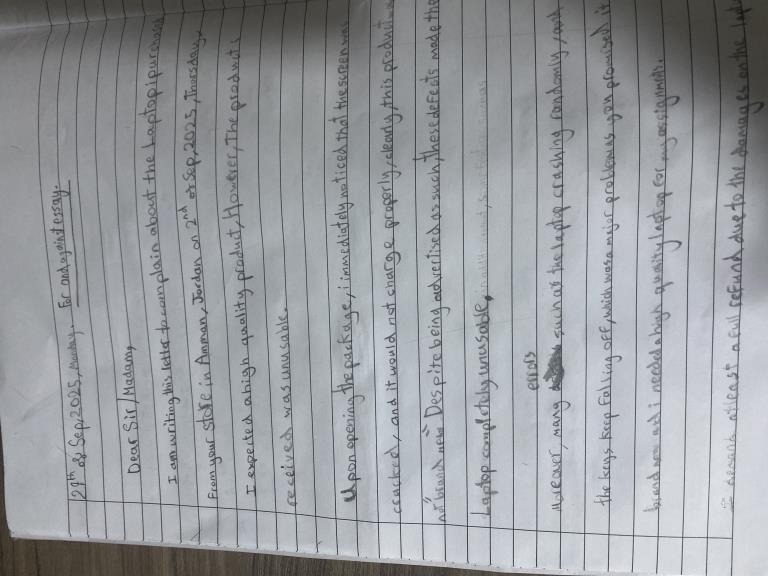 29th of Sep, 2025, Monday. For and against essay.
Dear Sir/Madam,
I am writing this letter to complain about the Laptop i purchased
From your store in Amman, Jordan on 2nd of Sep, 2025, Thursday.
I expected a high quality product, However, The product i
received was unusable.
Upon opening the package, i immediately noticed that the screen was
cracked, and it would not charge properly, clearly, this product was
not "brand new" Despite being advertised as such, these defects made the
Laptop completely unusable.
errors
Moreover, many such as the laptop crashing randomly, and
the keys keep falling off, which was a major problem as you promised it
brand new and i needed a high quality laptop for my assignments.
I demand at least a full refund, due to the damages on the